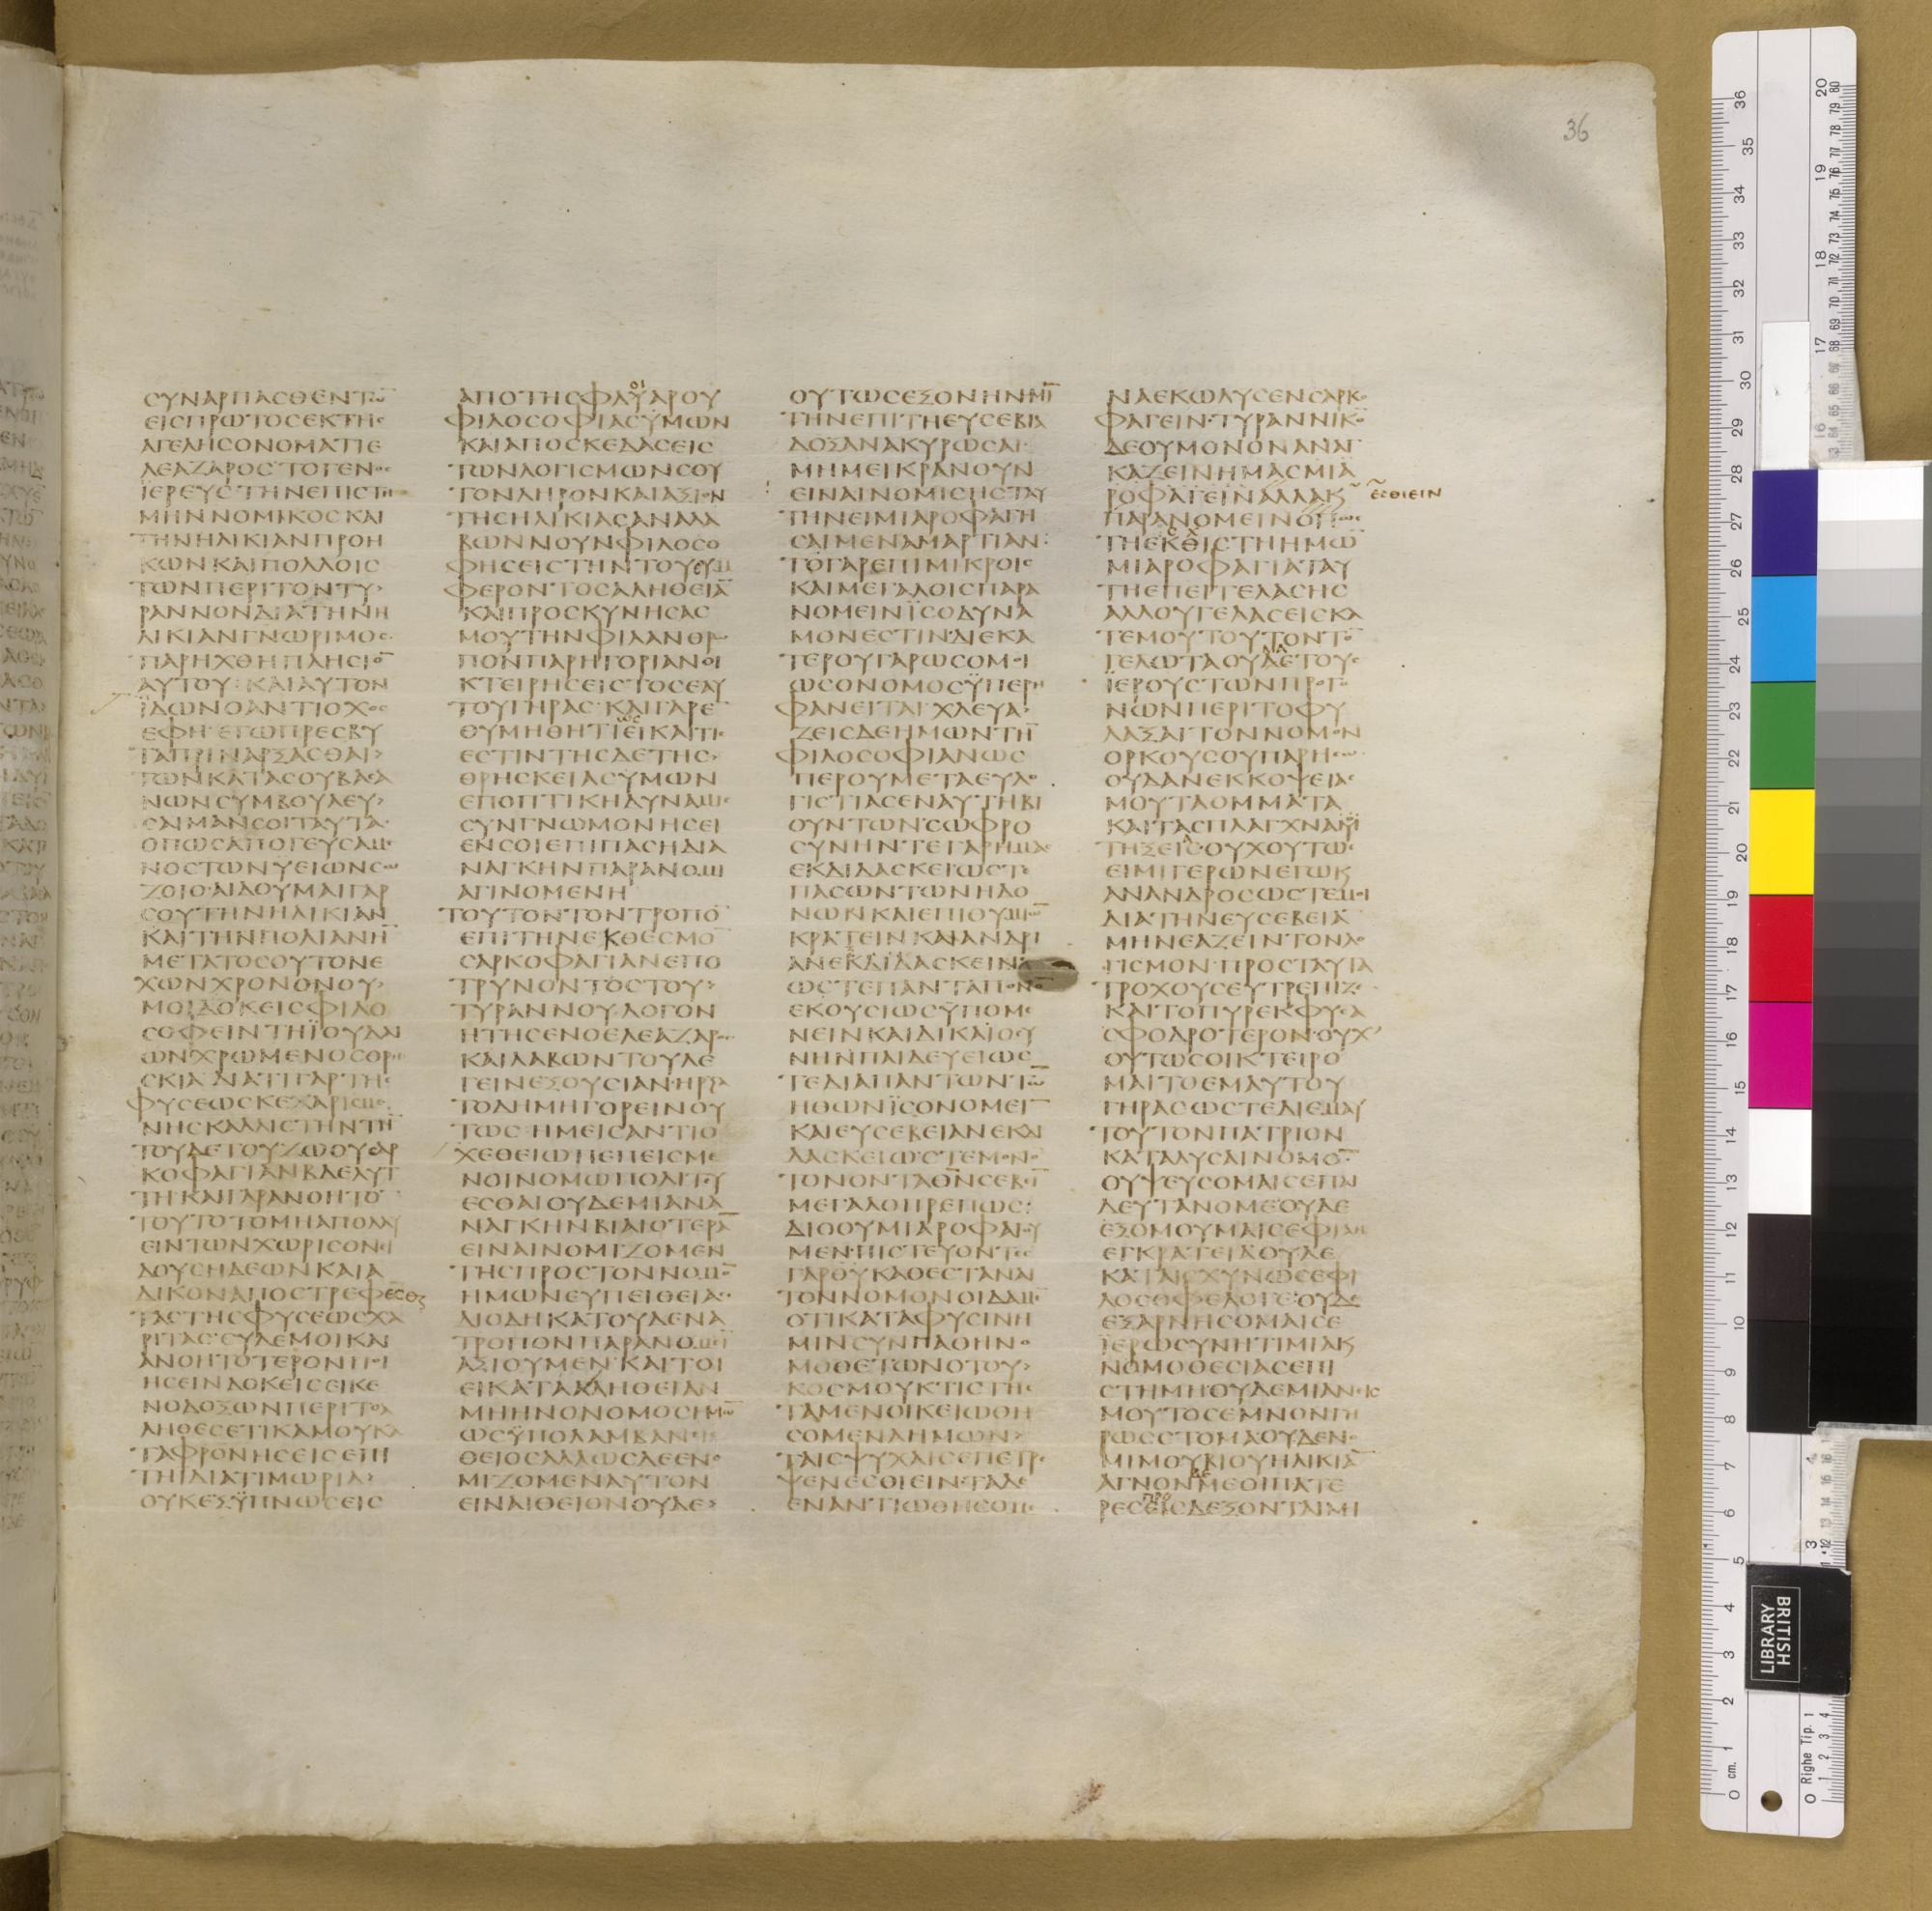 36
ϹΥΝΑΡΠΑϹΘΕΝΤΩ̅
ΕΙϹΠΡΩΤΟϹΕΚΤΗϹ
ΑΓΕΛΗϹΟΝΟΜΑΤΙΕ
ΛΕΑΖΑΡΟϹΤΟΓΕΝΟϹ
ΪΕΡΕΥϹΤΗΝΕΠΙϹΤΗ
ΜΗΝΝΟΜΙΚΟϹΚΑΙ
ΤΗΝΗΛΙΚΙΑΝΠΡΟΗ
ΚΩΝΚΑΙΠΟΛΛΟΙϹ
ΤΩΝΠΕΡΙΤΟΝΤΥ
ΡΑΝΝΟΝΔΙΑΤΗΝΗ
ΛΙΚΙΑΝΓΝΩΡΙΜΟϹ
ΠΑΡΗΧΘΗΠΛΗϹΙΟ̅
ΑΥΤΟΥ:ΚΑΙΑΥΤΟΝ
ΪΔΩΝΟΑΝΤΙΟΧΟϹ
ΕΦΗ·ΕΓΩΠΡΕϹΒΥ
ΤΑΠΡΙΝΑΡΞΑϹΘΑΙ
ΤΩΝΚΑΤΑϹΟΥΒΑϹΑ
ΝΩΝϹΥΜΒΟΥΛΕΥ
ϹΑΙΜΑΝϹΟΙΤΑΥΤΑ
ΟΠΩϹΑΠΟΓΕΥϹΑΜΕ
ΝΟϹΤΩΝΥΕΙΩΝϹΩ
ΖΟΙΟ·ΑΙΔΟΥΜΑΙΓΑΡ
ϹΟΥΤΗΝΗΛΙΚΙΑΝ
ΚΑΙΤΗΝΠΟΛΙΑΝΗ̅
ΜΕΤΑΤΟϹΟΥΤΟΝΕ
ΧΩΝΧΡΟΝΟΝΟΥ
ΜΟΙΔΟΚΕΙϹΦΙΛΟ
ϹΟΦΕΙΝΤΗΪΟΥΔΑΙ
ΩΝΧΡΩΜΕΝΟϹΘΡΗ
ϹΚΙΑ·ΔΙΑΤΙΓΑΡΤΗϹ
ΦΥϹΕΩϹΚΕΧΑΡΙϹΜΕ
ΝΗϹΚΑΛΛΙϹΤΗΝΤΗ̅
ΤΟΥΔΕΤΟΥΖΩΟΥϹΑΡ
ΚΟΦΑΓΙΑΝΒΔΕΛΥΤ
ΤΗ·ΚΑΙΓΑΡΑΝΟΗΤΟ̅
ΤΟΥΤΟΤΟΜΗΑΠΟΛΑΥ
ΕΙΝΤΩΝΧΩΡΙϹΟΝΙ
ΔΟΥϹΗΔΕΩΝΚΑΙΑ
ΔΙΚΟΝΑΠΟϹΤΡΕΦΕϹΘΕ
ΤΑϹΤΗϹΦΥϹΕΩϹΧΑ
ΡΙΤΑϹ·ϹΥΔΕΜΟΙΚΑΙ
ΑΝΟΗΤΟΤΕΡΟΝΠΟΙ
ΗϹΕΙΝΔΟΚΕΙϹΕΙΚΕ
ΝΟΔΟΞΩΝΠΕΡΙΤΟΑ
ΛΗΘΕϹΕΤΙΚΑΜΟΥΚΑ
ΤΑΦΡΟΝΗϹΕΙϹΕΠΙ
ΤΗΙΔΙΑΤΙΜΩΡΙΑ
ΟΥΚΕΞΫΠΝΩϹΕΙϹ
ΑΠΟΤΗϹΦΛΥΑΡΟΥ
ΦΙΛΟϹΟΦΙΑϹΫΜΩΝ
ΚΑΙΑΠΟϹΚΕΔΑϹΕΙϹ
ΤΩΝΛΟΓΙϹΜΩΝϹΟΥ
ΤΟΝΛΗΡΟΝΚΑΙΑΞΙΟΝ
ΤΗϹΗΛΙΚΙΑϹΑΝΑΛΑ
ΒΩΝΝΟΥΝΦΙΛΟϹΟ
ΦΗϹΕΙϹΤΗΝΤΟΥϹΥΜ
ΦΕΡΟΝΤΟϹΑΛΗΘΕΙΑ̅
ΚΑΙΠΡΟϹΚΥΝΗϹΑϹ
ΜΟΥΤΗΝΦΙΛΑΝΘΡΩ
ΠΟΝΠΑΡΗΓΟΡΙΑΝΟΙ
ΚΤΕΙΡΗϹΕΙϹΤΟϹΕΑΥ
ΤΟΥΓΗΡΑϹ·ΚΑΙΓΑΡΕ̅
ΘΥΜΗΘΗΤΙΕΙΚΑΙΤΙ
ΕϹΤΙΝΤΗϹΔΕΤΗϹ
ΘΡΗϹΚΕΙΑϹΥΜΩΝ
ΕΠΟΠΤΙΚΗΔΥΝΑΜΙϹ
ϹΥΝΓΝΩΜΟΝΗϹΕΙ
ΕΝϹΟΙΕΠΙΠΑϹΗΔΙΑ
ΝΑΓΚΗΝΠΑΡΑΝΟΜΙ
ΑΓΙΝΟΜΕΝΗ
ΤΟΥΤΟΝΤΟΝΤΡΟΠΟ̅
ΕΠΙΤΗΝΕΚΘΕϹΜΟ̅
ϹΑΡΚΟΦΑΓΙΑΝΕΠΟ
ΤΡΥΝΟΝΤΟϹΤΟΥ
ΤΥΡΑΝΝΟΥΛΟΓΟΝ
ΗΤΗϹΕΝΟΕΛΕΑΖΑΡΟϹ
ΚΑΙΛΑΒΩΝΤΟΥΛΕ
ΓΕΙΝΕΞΟΥϹΙΑΝΗΡΞΑ
ΤΟΔΗΜΗΓΟΡΕΙΝΟΥ
ΤΩϹ·ΗΜΕΙϹΑΝΤΙΟ
ΧΕΘΕΙΩΠΕΠΕΙϹΜΕ
ΝΟΙΝΟΜΩΠΟΛΙΤΕΥ
ΕϹΘΑΙΟΥΔΕΜΙΑΝΑ
ΝΑΓΚΗΝΒΙΑΙΟΤΕΡΑ̅
ΕΙΝΑΙΝΟΜΙΖΟΜΕΝ
ΤΗϹΠΡΟϹΤΟΝΝΟΜΟ̅
ΗΜΩΝΕΥΠΕΙΘΕΙΑϹ
ΔΙΟΔΗΚΑΤΟΥΔΕΝΑ
ΤΡΟΠΟΝΠΑΡΑΝΟΜΙ̅
ΑΞΙΟΥΜΕΝ·ΚΑΙΤΟΙ
ΕΙΚΑΤΑΑΛΗΘΕΙΑΝ
ΜΗΗΝΟΝΟΜΟϹΗΜΩ̅
ΩϹΫΠΟΛΑΜΒΑΝΕΙϹ
ΘΕΙΟϹΑΛΛΩϹΔΕΕΝΟ
ΜΙΖΟΜΕΝΑΥΤΟΝ
ΕΙΝΑΙΘΕΙΟΝΟΥΔΕ
ΟΥΤΩϹΕΞΟΝΗΝΜΙ̅
ΤΗΝΕΠΙΤΗΕΥϹΕΒΙΑ
ΔΟΞΑΝΑΚΥΡΩϹΑΙ·
ΜΗΜΕΙΚΡΑΝΟΥΝ
ΕΙΝΑΙΝΟΜΙϹΗϹΤΑΥ
ΤΗΝΕΙΜΙΑΡΟΦΑΓΗ
ϹΑΙΜΕΝΑΜΑΡΤΙΑΝ:
ΤΟΓΑΡΕΠΙΜΙΚΡΟΙϹ
ΚΑΙΜΕΓΑΛΟΙϹΠΑΡΑ
ΝΟΜΕΙΝΪϹΟΔΥΝΑ
ΜΟΝΕϹΤΙΝΔΙΕΚΑ
ΤΕΡΟΥΓΑΡΩϹΟΜΟΙ
ΩϹΟΝΟΜΟϹΫΠΕΡΗ
ΦΑΝΕΙΤΑΙ·ΧΛΕΥΑ
ΖΕΙϹΔΕΗΜΩΝΤΗ̅
ΦΙΛΟϹΟΦΙΑΝΩϹ
ΠΕΡΟΥΜΕΤΑΕΥΛΟ
ΓΙϹΤΙΑϹΕΝΑΥΤΗΒΙ
ΟΥΝΤΩΝϹΩΦΡΟ
ϹΥΝΗΝΤΕΓΑΡΗΜΑϹ
ΕΚΔΙΔΑϹΚΕΙΩϹΤΕ
ΠΑϹΩΝΤΩΝΗΔΟ
ΝΩΝΚΑΙΕΠΙΘΥΜΙΩ̅
ΚΡΑΤΕΙΝΚΑΙΑΝΔΡΙ
ΑΝΕΚΔΙΔΑϹΚΕΙΝ
ΩϹΤΕΠΑΝΤΑΠΟΝΟ̅
ΕΚΟΥϹΙΩϹΫΠΟΜΕ
ΝΕΙΝΚΑΙΔΙΚΑΙΟϹΥ
ΝΗΝΠΑΙΔΕΥΕΙΩϹ
ΤΕΔΙΑΠΑΝΤΩΝΤΩ̅
ΗΘΩΝΪϹΟΝΟΜΕΙ̅
ΚΑΙΕΥϹΕΒΕΙΑΝΕΚΔΙ
ΔΑϹΚΕΙΩϹΤΕΜΟΝΟ̅
ΤΟΝΟΝΤΑΘ̅Ν̅ϹΕΒΕΙ̅
ΜΕΓΑΛΟΠΡΕΠΩϹ:
ΔΙΟΟΥΜΙΑΡΟΦΑΓΟΥ
ΜΕΝ·ΠΙϹΤΕΥΟΝΤΕϹ
ΓΑΡΘΥΚΑΘΕϹΤΑΝΑΙ
ΤΟΝΝΟΜΟΝΟΙΔΑΜΕ
ΟΤΙΚΑΤΑΦΥϹΙΝΗ
ΜΙΝϹΥΝΠΑΘΗΝΟ
ΜΟΘΕΤΩΝΟΤΟΥ
ΚΟϹΜΟΥΚΤΙϹΤΗϹ
ΤΑΜΕΝΟΙΚΕΙΩΘΗ
ϹΟΜΕΝΑΗΜΩΝ
ΤΑΙϹΨΥΧΑΙϹΕΠΕΤΡΕ
ΨΕΝΕϹΘΙΕΙΝ·ΤΑΔΕ
ΕΝΑΝΤΙΩΘΗϹΟΜΕ
ΝΑΕΚΩΛΥϹΕΝϹΑΡΚΟ
ΦΑΓΕΙΝ·ΤΥΡΑΝΝΙΚΟ̅
ΔΕΟΥΜΟΝΟΝΑΝΑΓ
ΚΑΖΕΙΝΗΜΑϹΜΙΑ
ΡΟΦΑΓΕΙΝΑΛΛΑΚϚ ΕϹΘΙΕΙΝ
ΠΑΡΑΝΟΜΕΙΝΟΠΩϹ
ΤΗΕΚΘΙϹΤΗΗΜΩ̅
ΜΙΑΡΟΦΑΓΙΑΤΑΥ
ΤΗΕΠΕΓΓΕΛΑϹΗϹ
ΑΛΛΟΥΓΕΛΑϹΕΙϹΚΑ
ΤΕΜΟΥΤΟΥΤΟΝΤΟ̅
ΓΕΛΩΤΑΟΥΔΕΤΟΥϹ
ΪΕΡΟΥϹΤΩΝΠΡΟΓΟ
ΝΩΝΠΕΡΙΤΟΦΥ
ΛΑΞΑΙΤΟΝΝΟΜΟΝ
ΟΡΚΟΥϹΟΥΠΑΡΗϹΩ
ΟΥΔΑΝΕΚΚΟΨΕΙΑϹ
ΜΟΥΤΑΟΜΜΑΤΑ
ΚΑΙΤΑϹΠΛΑΓΧΝΑΜΟΥ
ΤΗΞΕΙϹ·ΟΥΧΟΥΤΩϹ
ΕΙΜΙΓΕΡΩΝΕΓΩΚϚ
ΑΝΑΝΔΡΟϹΩϹΤΕΜΟΙ
ΔΙΑΤΗΝΕΥϹΕΒΕΙΑ̅
ΜΗΝΕΑΖΕΙΝΤΟΝΛΟ
ΓΙϹΜΟΝ·ΠΡΟϹΤΑΥΤΑ
ΤΡΟΧΟΥϹΕΥΤΡΕΠΙΖΕ
ΚΑΙΤΟΠΥΡΕΚΦΥϹΑ
ϹΦΟΔΡΟΤΕΡΟΝ·ΟΥΧ
ΟΥΤΩϹΟΙΚΤΕΙΡΟ
ΜΑΙΤΟΕΜΑΥΤΟΥ
ΓΗΡΑϹΩϹΤΕΔΙΕΜΑΥ
ΤΟΥΤΟΝΠΑΤΡΙΟΝ
ΚΑΤΑΛΥϹΑΙΝΟΜΟ̅
ΟΥΨΕΥϹΟΜΑΙϹΕΠΑΙ
ΔΕΥΤΑΝΟΜΕΟΥΔΕ
ΕΞΟΜΟΥΜΑΙϹΕΦΙΛΗ
ΕΓΚΡΑΤΕΙΑΟΥΔΕ
ΚΑΤΑΙϹΧΥΝΩϹΕΦΙ
ΛΟϹΟΦΕΛΟΓΕ·ΟΥΔΕ
ΕΞΑΡΝΗϹΟΜΑΙϹΕ
ΪΕΡΩϹΥΝΗΤΙΜΙΑΚϚ
ΝΟΜΟΘΕϹΙΑϹΕΠΙ
ϹΤΗΜΗ·ΟΥΔΕΜΙΑΝΙϹ
ΜΟΥΤΟϹΕΜΝΟΝΓΗ
ΡΩϹϹΤΟΜΑΟΥΔΕΝΟ
ΜΙΜΟΥΒΙΟΥΗΛΙΚΙΑ̅
ΑΓΝΟΝΜΕΟΙΠΑΤΕ
ΡΕϹΕΙϹΔΕΞΟΝΤΑΙΜΙ
LIBRARY
BRITISH